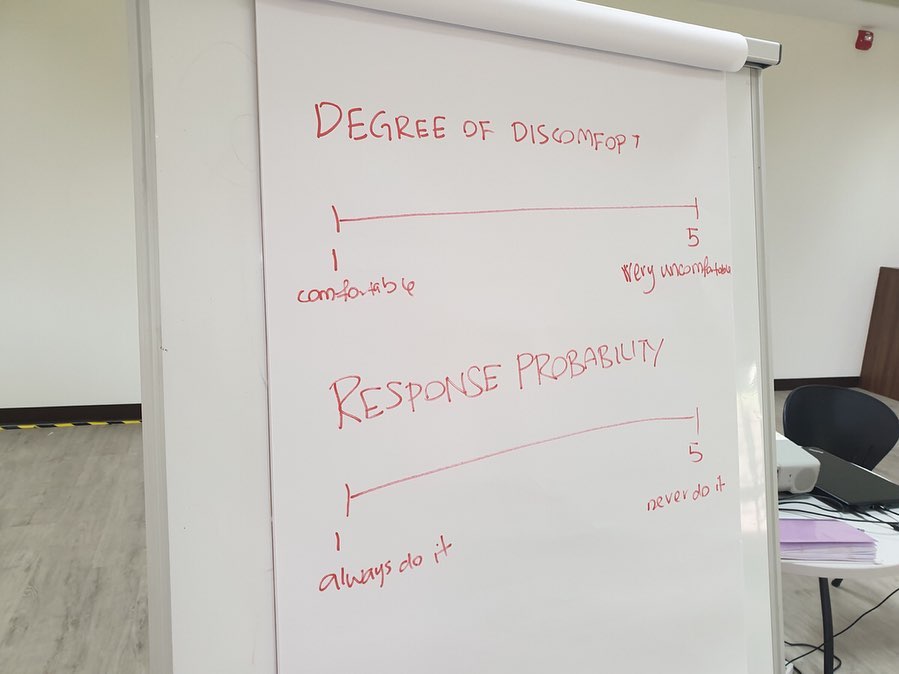 DEGREE OF DISCOMFORT
1
5
comfortable
very uncomfortable
RESPONSE PROBABILITY
5
never do it
1
always do it